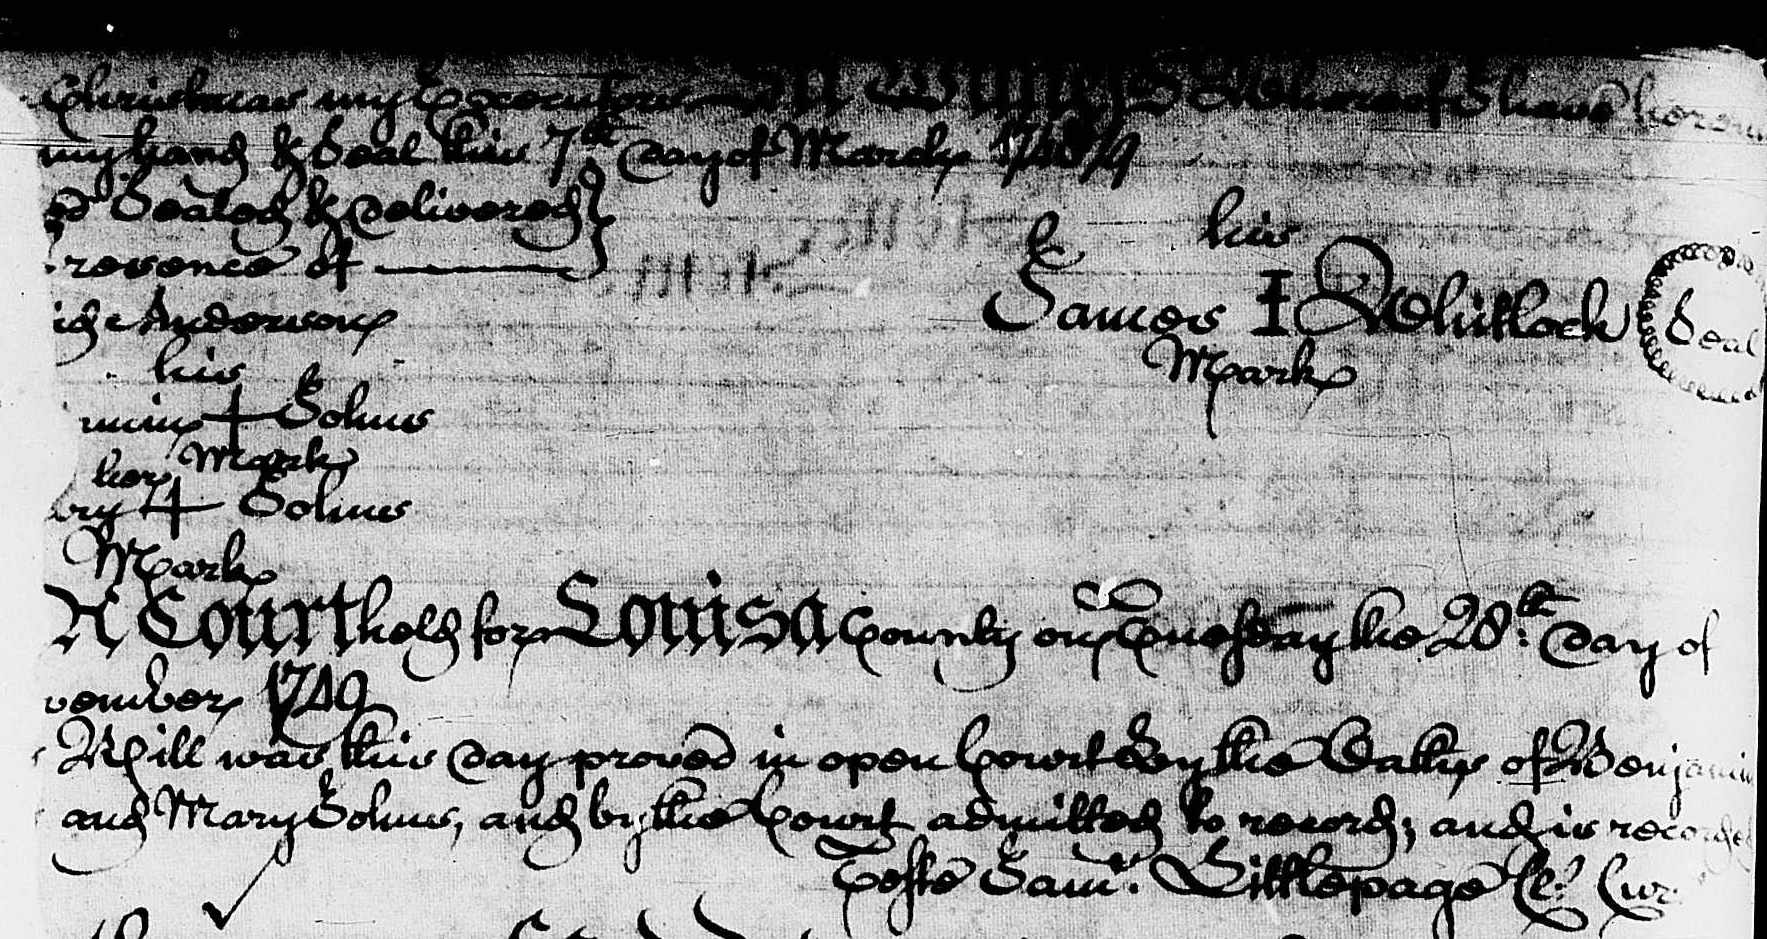 Christmas my Executors In Witness Whereof I have hereun
my hand & Seal this 7th day of March 1748/9
ed Sealed & delivered
resence of
his
James I Whitlock Seal
Mark
ich Anderson
his
min + Johns
Mark
her
ary + Johns
Mark
At a Court held for Louisa County on Tuesday the 28th: day of
vember 1749
Will was this day proved in open Court by the Oaths of Benjamin
and Mary Johns, and by the Court admitted to record; and is recorded
Teste Saml. Littlepage Cl. Cur